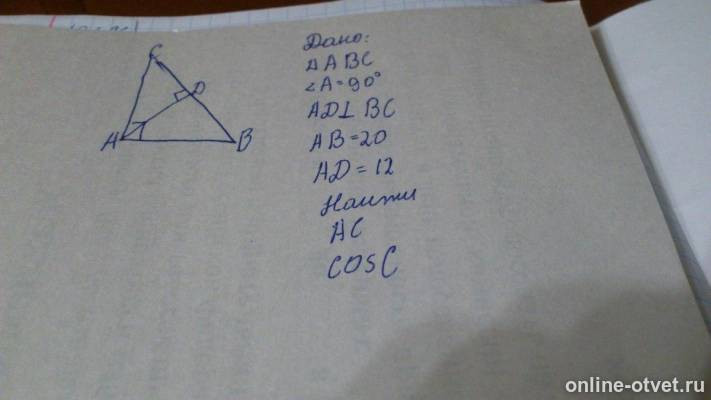 C
D
A
B
Дано:
△ABC
∠A=90°
AD⊥BC
AB=20
AD=12
Найти
AC
cosC
online-otvet.ru